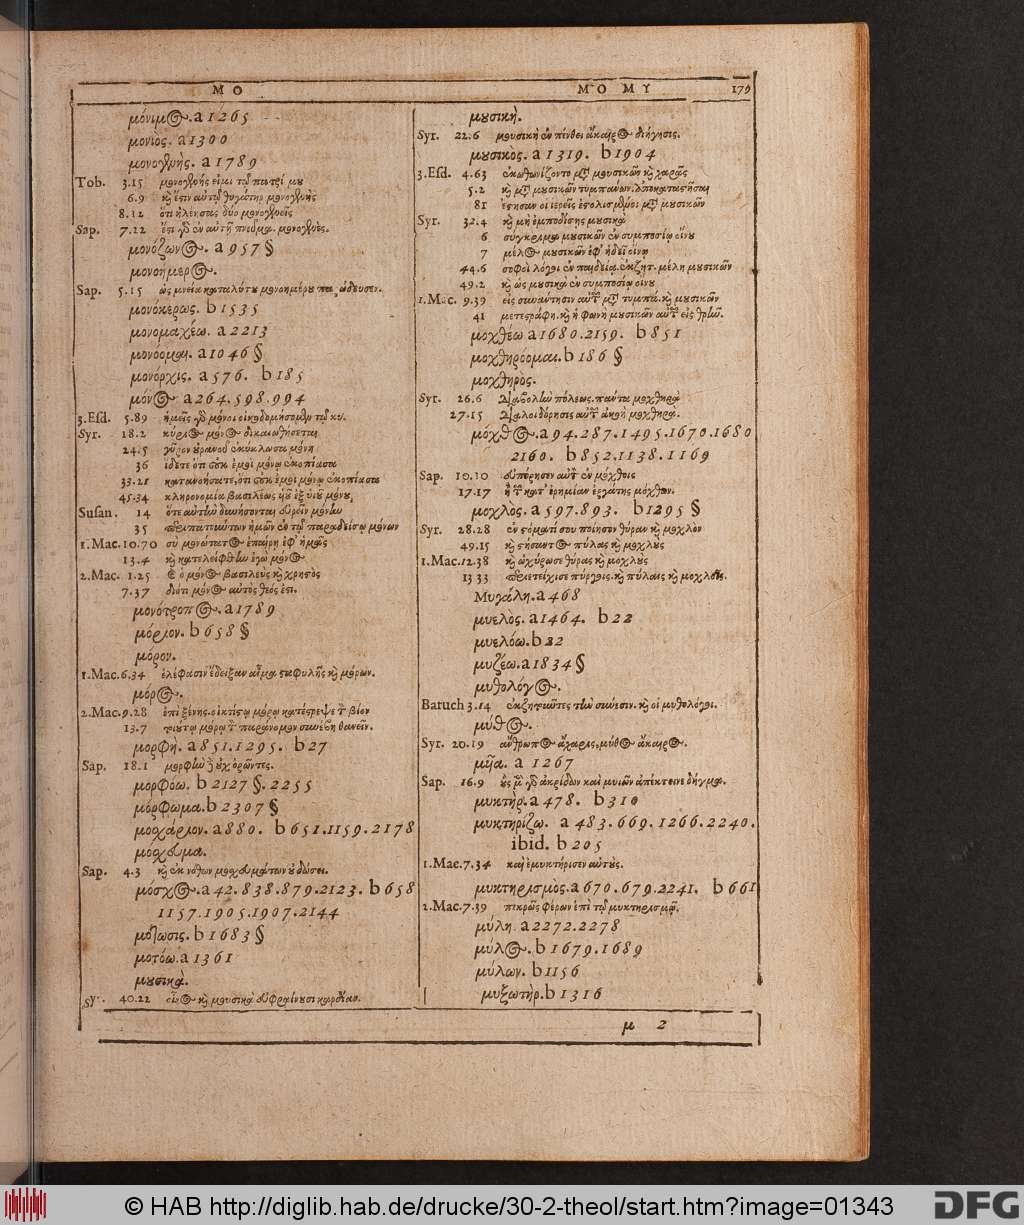 ΜΟ
μόνιμος. a 1265
μονιὸς. a 1300
μονογενὴς. a 1789
Tob. 3.15 μονογενής εἰμι τῷ πατρί μου
6.9 καὶ ἔστιν αὐτῷ θυγάτηρ μονογενὴς
8.12 ὅτι ἠλέησας δύο μονογενεῖς
Sap. 7.22 ἔστι γὰρ ἐν αὐτῇ πνεῦμα. μονογενὲς.
μονόζωνος. a 957 §
μονοήμερος.
Sap. 5.15 ὡς μνεία καταλύτου μονοημέρου παρώδευσεν.
μονόκερως. b 1535
μονομαχέω. a 2213
μονόομαι. a 1046 §
μονόρχις. a 576. b 185
μόνος a 264.598.994
3.Esd. 5.89 ἡμεῖς γὰρ μόνοι οἰκοδομήσομεν τῷ κυ.
Syr. 18.2 κύριος μόνος δικαιωθήσεται
24.5 γῦρον οὐρανοῦ ἐκύκλωσα μόνη
36 ἴδετε ὅτι οὐκ ἐμοὶ μόνῳ ἐκοπίασα
33.21 κατανοήσατε, ὅτι οὐκ ἐμοὶ μόνῳ ἐκοπίασα
45.34 κληρονομία βασιλέως υἱοῦ ἐξ υἱοῦ μόνου
Susan. 14 ὅτε αὐτὴν δυνήσονται εὑρεῖν μόνην
35 περιπατούντων ἡμῶν ἐν τῷ παραδείσῳ μόνων
1.Mac. 10.70 σὺ μονώτατος ἐπαίρῃ ἐφ' ἡμᾶς
13.4 καὶ κατελείφθην ἐγὼ μόνος
2.Mac. 1.25 ὁ μόνος βασιλεὺς καὶ χρηστὸς
7.37 διότι μόνος αὐτὸς θεός ἐστι.
μονότροπος. a 1789
μόριον. b 658 §
μόρον.
1.Mac. 6.34 ἐλέφασιν ἔδειξαν αἷμα σταφυλῆς καὶ μόρων.
μόρος.
2.Mac. 9.28 ἐπὶ ξένης. οἰκτίστῳ μόρῳ κατέστρεψε τὸν βίον
13.7 τοιούτῳ μόρῳ τὸν παράνομον συνέβη θανεῖν.
μορφὴ. a 851.1295. b 27
Sap. 18.1 μορφὴν δὲ οὐχ ὁρῶντες.
μορφόω. b 2127 §. 2255
μόρφωμα. b 2307 §
μοσχάριον. a 880. b 651.1159.2178
μόσχευμα.
Sap. 4.3 καὶ ἐκ νόθων μοσχευμάτων οὐ δώσει.
μόσχος. a 42.838.879.2123. b 658
1157.1905.1907.2144
μότωσις. b 1683 §
μοτόω. a 1361
μουσικὰ.
Syr. 40.22 οἶνος καὶ μουσικὰ εὐφραίνουσι καρδίαν.
ΜΟ ΜΥ 179
μουσικὴ.
Syr. 22.6 μουσικὴ ἐν πένθει ἄκαιρος διήγησις.
μουσικὸς. a 1319. b 1904
3.Esd. 4.63 ἐκωθωνίζοντο μετὰ μουσικῶν καὶ χαρᾶς
5.2 καὶ μετὰ μουσικῶν τυμπάνων. ἀποκαταστῆσαι
81 ἔστησαν οἱ ἱερεῖς ἐστολισμένοι μετὰ μουσικῶν
Syr. 32.4 καὶ μὴ ἐμποδίσῃς μουσικὰ
6 σύγκριμα μουσικῶν ἐν συμποσίῳ οἴνου
7 μέλος μουσικῶν ἐφ' ἡδεῖ οἴνῳ
44.6 σοφοὶ λόγοι ἐν παιδείᾳ. ἐκζητ. μέλη μουσικῶν
49.2 καὶ ὡς μουσικὰ ἐν συμποσίῳ οἴνου
1.Mac. 9.39 εἰς συνάντησιν αὐτῶν μετὰ τυμπά. καὶ μουσικῶν
41 μετεστράφη. καὶ ἡ φωνὴ μουσικῶν αὐτῶν εἰς θρῆν.
μοχθέω a 1680.2159. b 851
μοχθηρόομαι. b 186 §
μοχθηρὸς.
Syr. 26.6 διαβολὴν πόλεως. πάντα μοχθηρὰ
27.15 διαλοιδόρησις αὐτῶν ἀκοὴ μοχθηρά.
μόχθος. a 94.287.1495.1670.1680
2160. b 852.1138.1169
Sap. 10.10 εὐπόρησεν αὐτὸν ἐν μόχθοις
17.17 ἢ τῶν κατ' ἐρημίαν ἐργάτης μόχθων.
μοχλὸς. a 597.893. b 1295 §
Syr. 28.28 ἐν στόματί σου ποίησον θύραν καὶ μοχλὸν
49.15 καὶ στήσαντος πύλας καὶ μοχλοὺς
1.Mac. 12.38 καὶ ὠχύρωσε θύρας καὶ μοχλοὺς
13 33 περιετείχισε πύργοις. καὶ πύλαις καὶ μοχλοῖς.
Μυγάλη. a 468
μυελὸς. a 1464. b 22
μυελόω. b 22
μυζέω. a 1834 §
μυθολόγος.
Baruch 3.14 ἐκζητοῦντες τὴν σύνεσιν. καὶ οἱ μυθολόγοι.
μύθος.
Syr. 20.19 ἄνθρωπος ἄχαρις, μῦθος ἄκαιρος.
μυῖα. a 1267
Sap. 16.9 οὓς μὲν γὰρ ἀκρίδων καὶ μυιῶν ἀπέκτεινε δήγμα.
μυκτὴρ. a 478. b 310
μυκτηρίζω. a 483.669.1266.2240.
ibid. b 205
1.Mac. 7.34 καὶ ἐμυκτήρισεν αὐτοὺς.
μυκτηρισμὸς. a 670.679.2241. b 661
2.Mac. 7.39 πικρῶς φέρων ἐπὶ τῷ μυκτηρισμῷ.
μύλη. a 2272.2278
μύλος. b 1679.1689
μύλων. b 1156
μυξωτὴρ. b 1316
μ 2
© HAB http://diglib.hab.de/drucke/30-2-theol/start.htm?image=01343
DFG